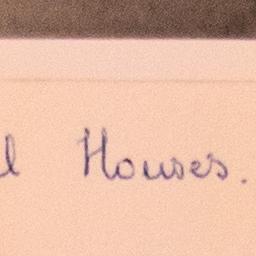 l Houses.